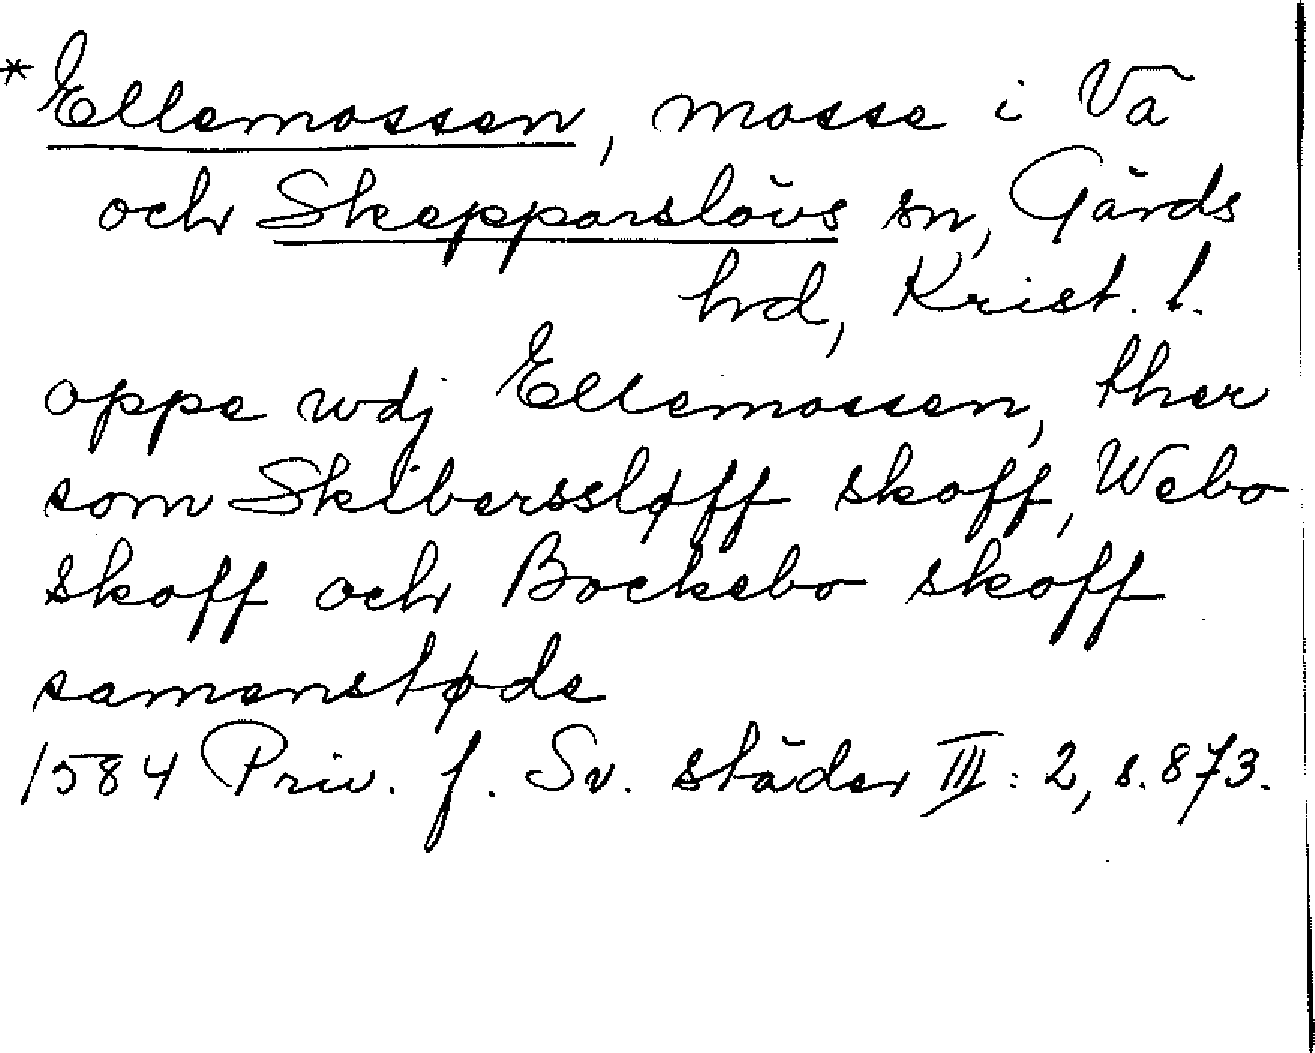 * Ellemossen, mosse i Vä
och Skepparslövs sn, Gärds
hrd, Krist. l.
oppe wdj Ellemossen, ther
som Skiberssløff skoff, Webo
skoff och Bockebo skoff
samenstøde
1584 Priv. f. Sv. städer III: 2, s. 873.